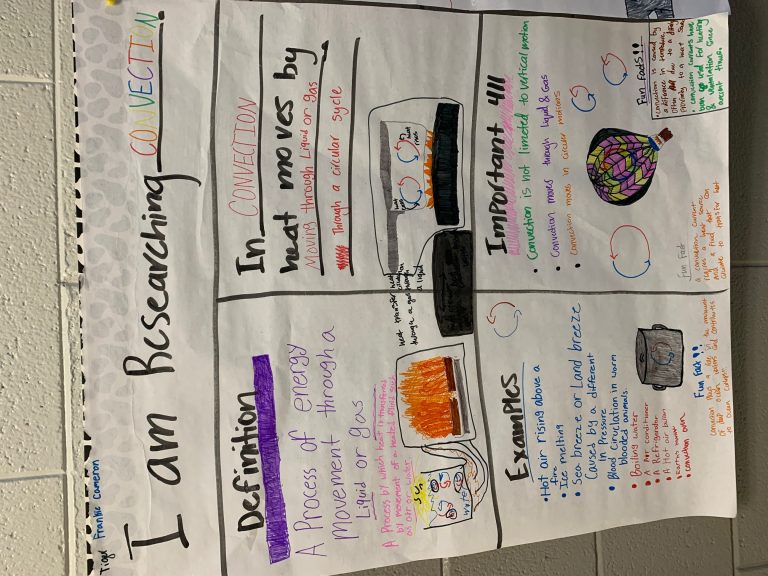 Frankie Cameron
I am Researching CONVECTION.
Definition
A Process of energy
movement through a
Liquid or gas
A Process by which heat is transferred
by movement of a heated fluid such
as air or water.
In CONVECTION
heat moves by
Moving through Liquid or gas
Through a circular sycle
heat transfer
through a gas
Examples
• Hot air rising above a
fire
• Ice melting
• Sea breeze or Land breeze
Caused by a different
in Pressure
• Blood Circulation in warm
blooded animals
• Boiling water
• A Air conditioner
• A Refrigerator
• A Hot air baloon
• convection oven
Fun Fact!!
Important
• Convection is not limeted to vertical motion
• Convection moves through Liquid & Gas
• Convection moves in circular motions
Fun Fact
a convection current
requires a heat source
and a fluid that can
circulate to transfer heat
Fun Facts!!
• convection is caused by
a difference in temperature
often due to a
proximity to a heat
• convection currents have
been used for heating
& Ventilation since
ancient times.